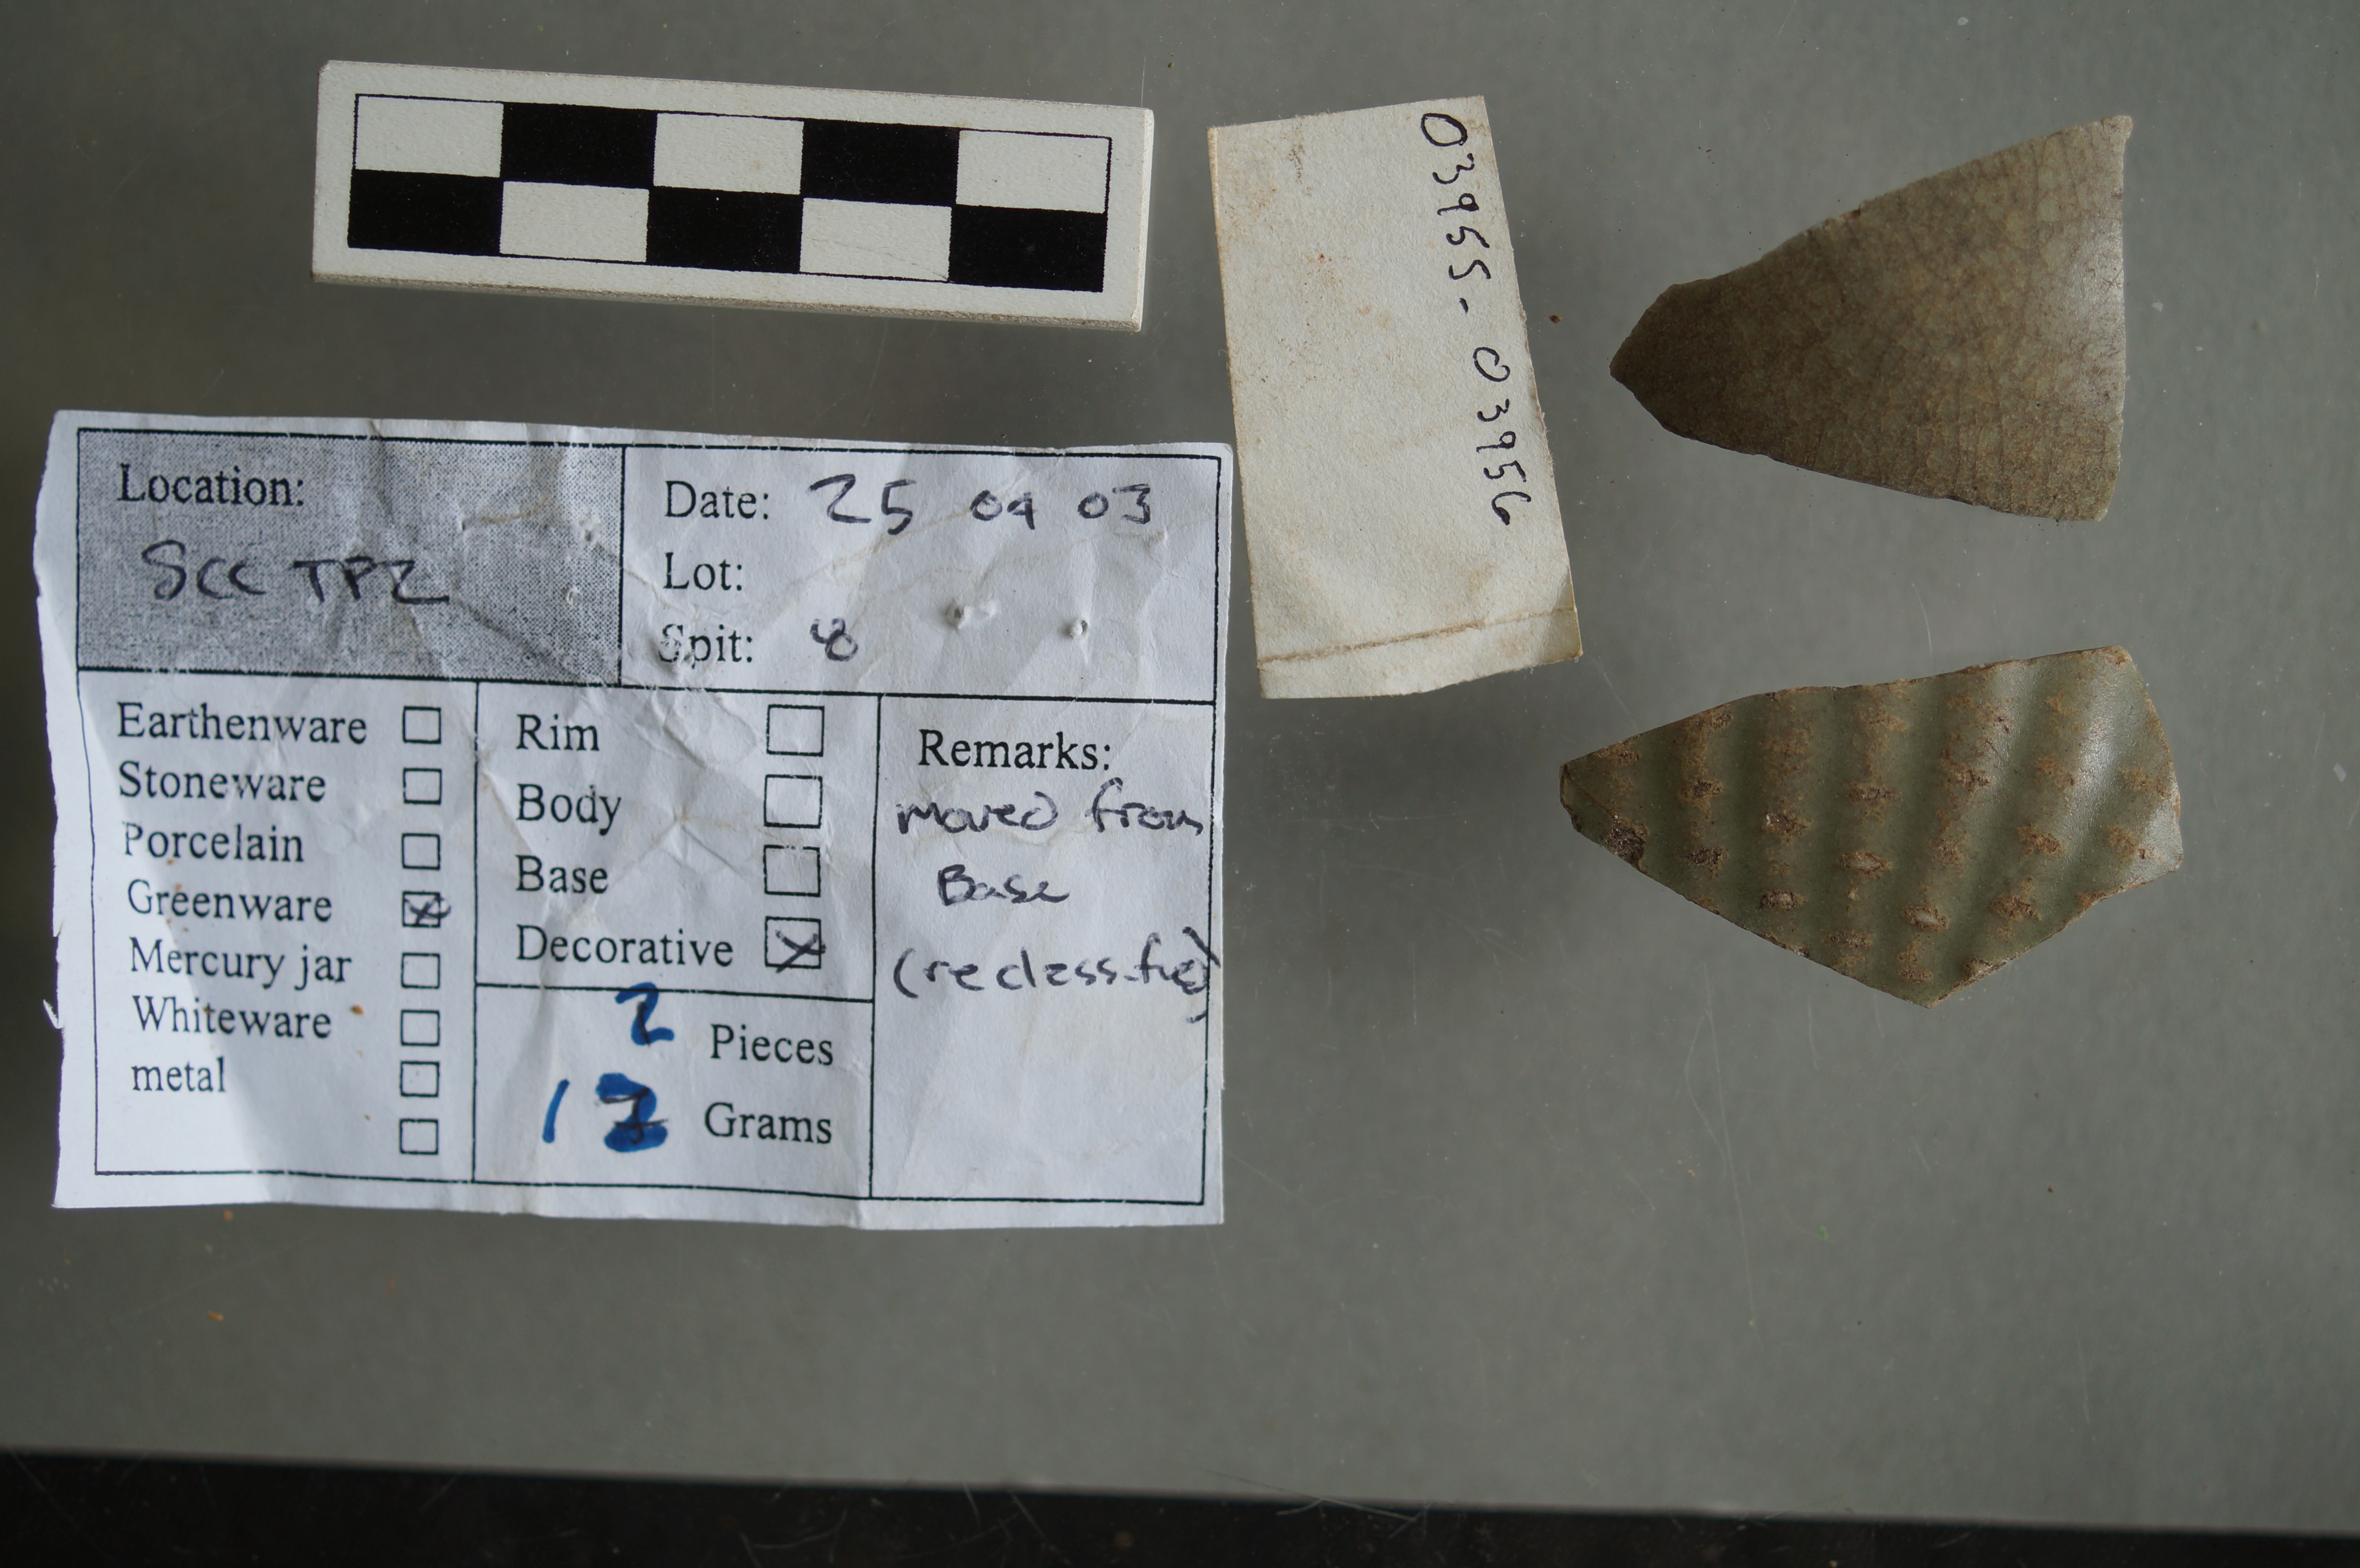 Location:
SCC TP2
Date: 25 04 03
Lot:
Spit: 8
Earthenware
Stoneware
Porcelain
Greenware
Mercury jar
Whiteware
metal
Rim
Body
Base
Decorative
2 Pieces
Grams
Remarks:
moved from
Base
03955-03956